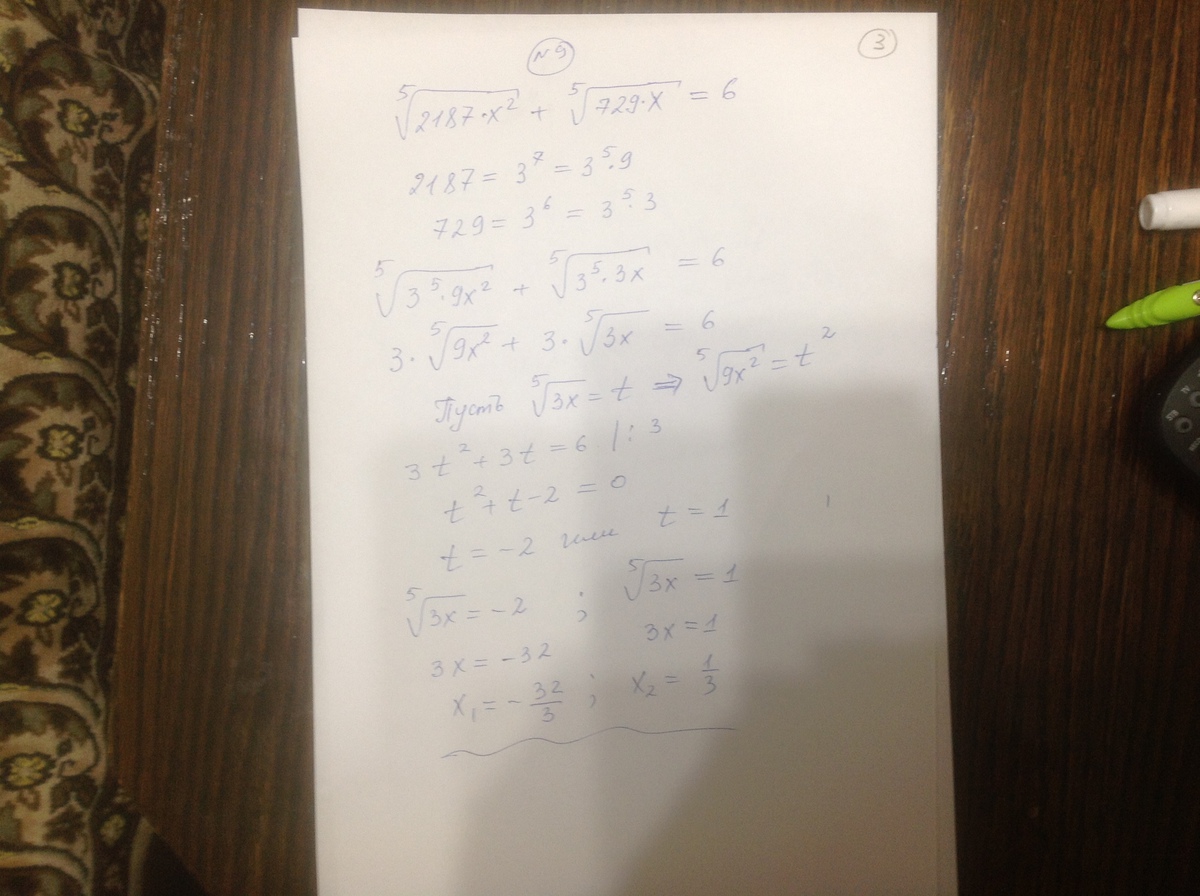 №9
3
⁵√(2187·x²) + ⁵√(729·x) = 6
2187 = 3⁷ = 3⁵·9
729 = 3⁶ = 3⁵·3
⁵√(3⁵·9x²) + ⁵√(3⁵·3x) = 6
3·⁵√(9x²) + 3·⁵√(3x) = 6
Пусть ⁵√(3x) = t ⇒ ⁵√(9x²) = t²
3t² + 3t = 6 |:3
t² + t - 2 = 0
t = -2 или t = 1
⁵√(3x) = -2 ; ⁵√(3x) = 1
3x = -32 3x = 1
x₁ = -32/3 ; x₂ = 1/3